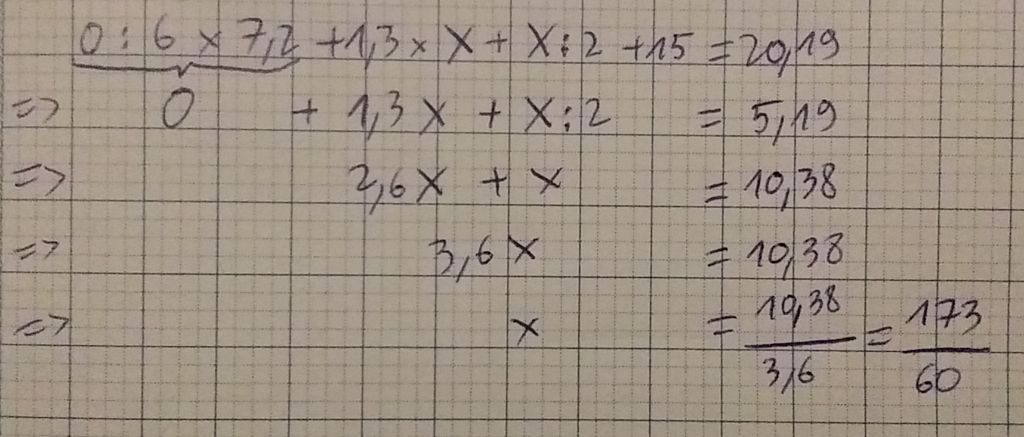 0 : 6 × 7,2 + 1,3 × x + x : 2 + 15 = 20,19
=> 0 + 1,3 x + x : 2 = 5,19
=> 2,6 x + x = 10,38
=> 3,6 x = 10,38
=> x = 10,38 / 3,6 = 173 / 60